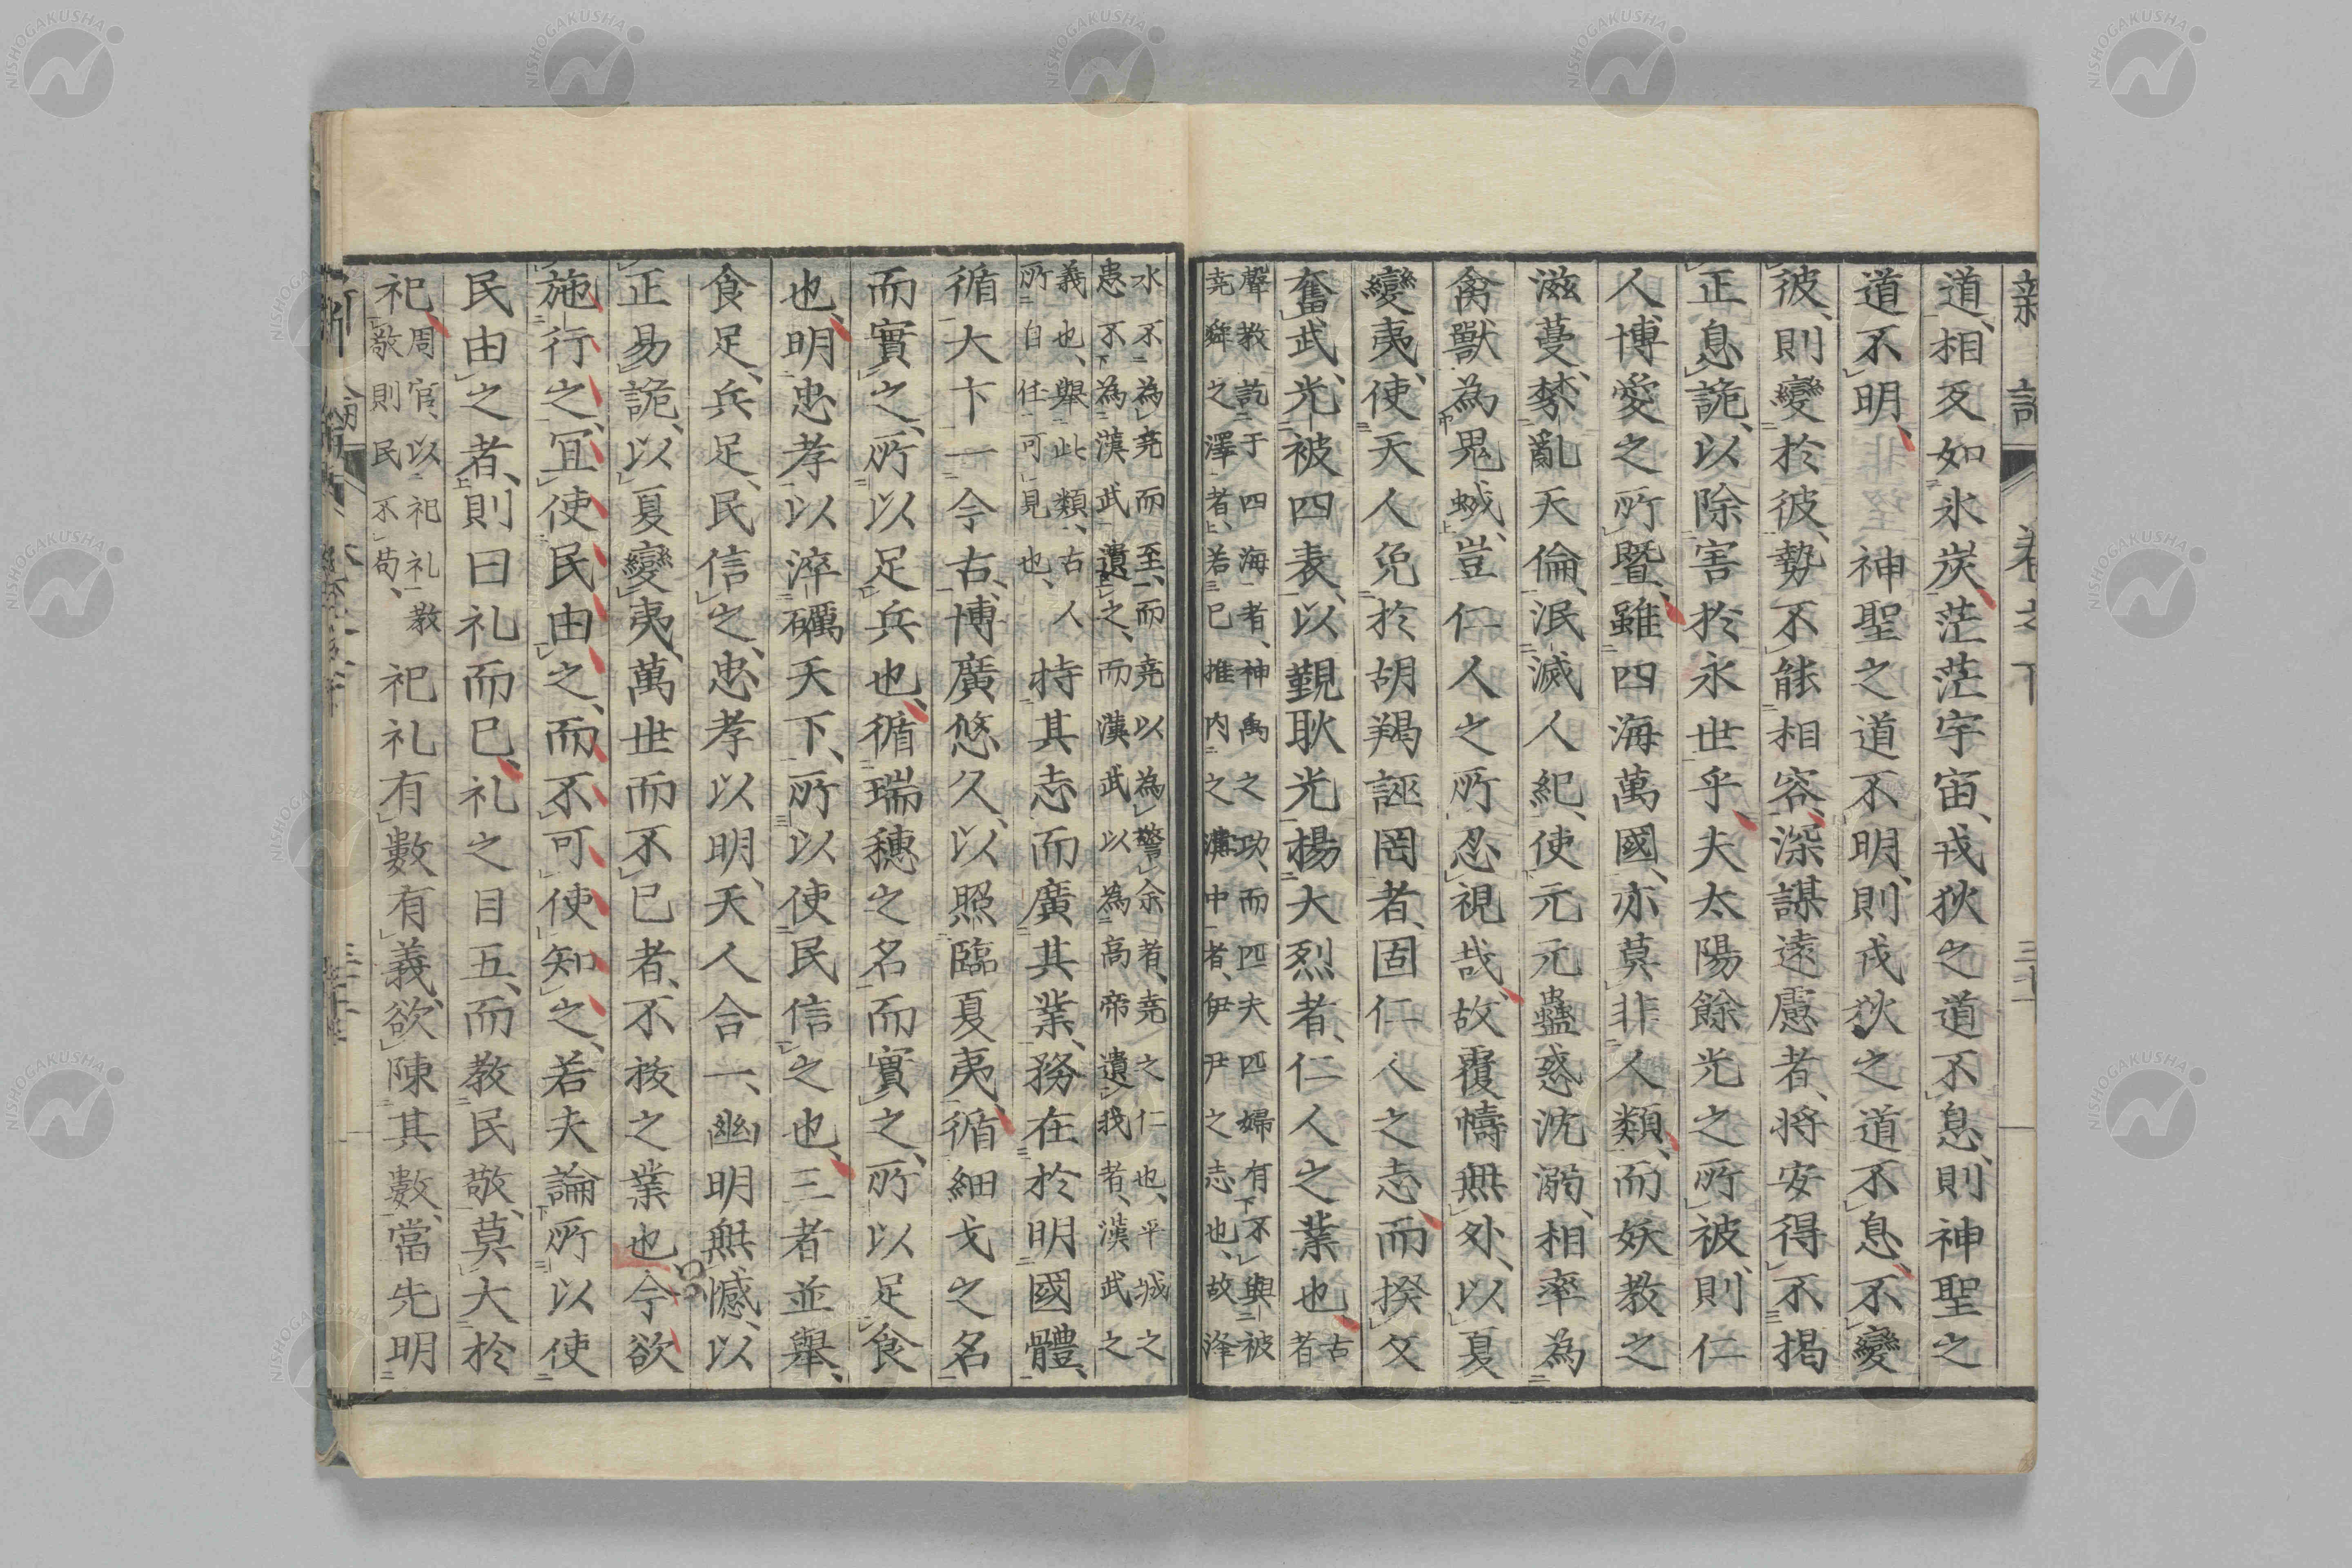 新論 卷之下
道、相反如氷炭、茫茫宇宙、戎狄之道不息、則神聖之
道不明、神聖之道不明、則戎狄之道不息、不變
彼、則變於彼、勢不能相容、深謀遠慮者、將安得不揭
正息詭、以除害於永世乎、夫太陽餘光之所被、則仁
人博愛之所曁、雖四海萬國、亦莫非人類、而妖教之
滋蔓、禁亂天倫、泯滅人紀、使元元蠱惑沈溺、相率為
禽獸為鬼蜮、豈仁人之所忍視哉、故覆幬無外、以夏
變夷、使天人免於胡羯誣罔者、固仁人之志、而揆文
奮武、光被四表、以覲耿光、揚大烈者、仁人之業也、古者
聲教訖于四海者、神禹之功、而匹夫匹婦有不與被
堯舜之澤者、若已推內之溝中者、伊尹之志也、故洚
水不為堯而至、而堯以為警余者、堯之仁也、平城之
患不為漢武遺之、而漢武以為高帝遺我者、漢武之
義也、擧此類、古人
所自任可見也、
持其志而廣其業、務在於明國體、
循大卞一今古、博廣悠久、以照臨夏夷、循細戈之名
而實之、所以足兵也、循瑞穗之名而實之、所以足食
也、明忠孝以淬礪天下、所以使民信之也、三者並擧、
食足、兵足、民信之、忠孝以明、天人合一、幽明無憾、以
正易詭、以夏變夷、萬世而不已者、不拔之業也今欲
施行之、宜使民由之、而不可使知之、若夫論所以使
民由之者、則曰礼而已、礼之目五、而教民敬、莫大於
祀、周官、以祀礼教
敬則民不苟、
祀礼有數有義、欲陳其數、當先明